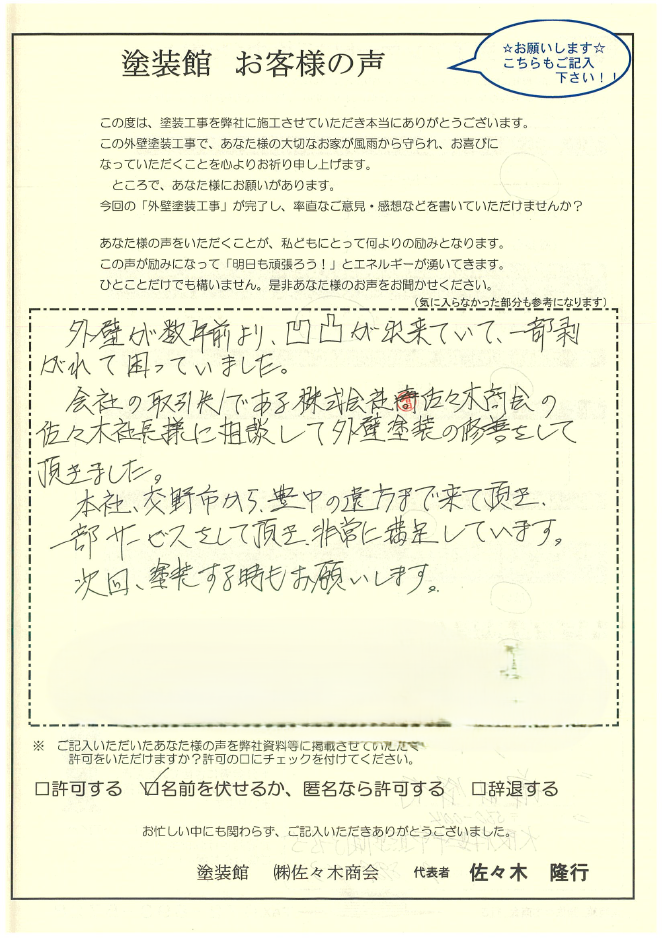 塗装館 お客様の声
☆お願いします☆
こちらもご記入
下さい！！
この度は、塗装工事を弊社に施工させていただき本当にありがとうございます。
この外壁塗装工事で、あなた様の大切なお家が風雨から守られ、お喜びに
なっていただくことを心よりお祈り申し上げます。
ところで、あなた様にお願いがあります。
今回の「外壁塗装工事」が完了し、率直なご意見・感想などを書いていただけませんか？
あなた様の声をいただくことが、私どもにとって何よりの励みとなります。
この声が励みになって「明日も頑張ろう！」とエネルギーが湧いてきます。
ひとことだけでも構いません。是非あなた様のお声をお聞かせください。
（気に入らなかった部分も参考になります）
外壁が数年前より、凹凸が出来ていて、一部剥
がれて困っていました。
会社の取引先である株式会社佐々木商会の
佐々木社長様に相談して外壁塗装の修善をして
頂きました。
本社、交野市から、豊中の遠方まで来て頂き、
一部サービスをして頂き、非常に満足しています。
次回、塗装する時もお願いします。
※ ご記入いただいたあなた様の声を弊社資料等に掲載させていただく
許可をいただけますか？許可の□にチェックを付けてください。
□許可する ☑名前を伏せるか、匿名なら許可する □辞退する
お忙しい中にも関わらず、ご記入いただきありがとうございました。
塗装館 ㈱佐々木商会 代表者 佐々木 隆行